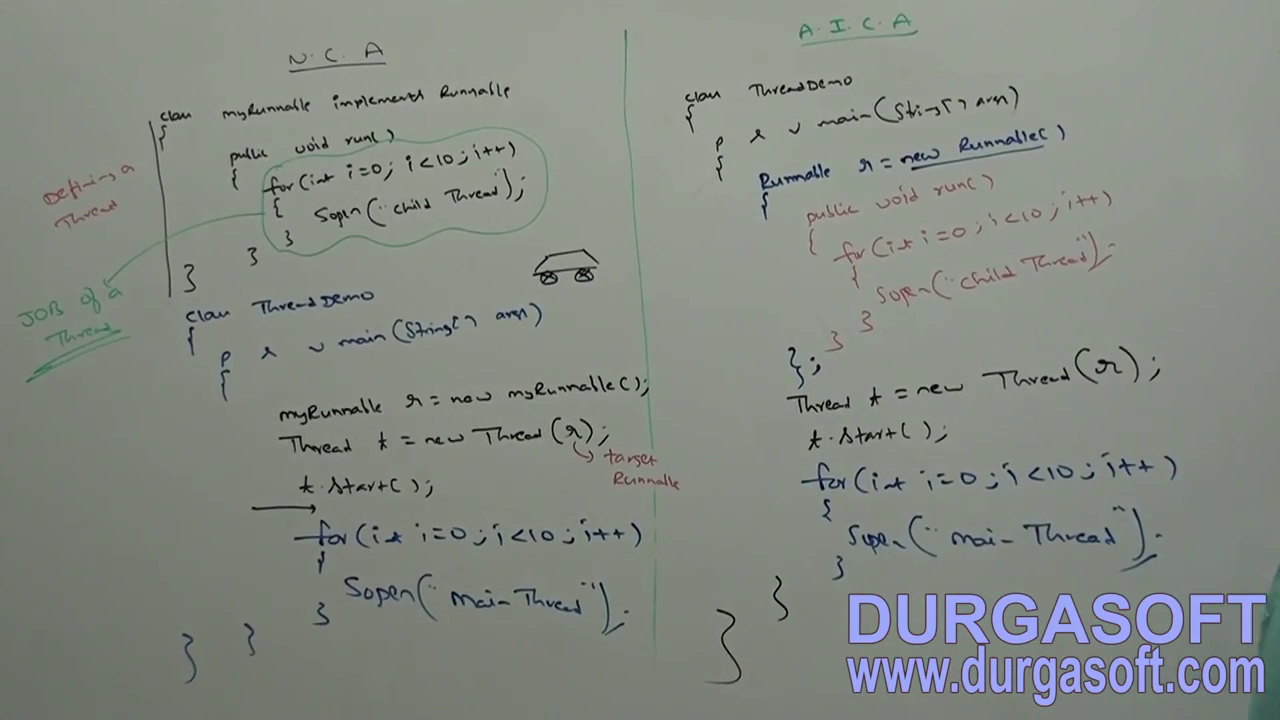 N.C.A
class myRunnable implements Runnable
{
public void run()
{
for(int i=0; i<10; i++)
{
Sopen("child Thread");
}
}
}
Defining a
Thread
JOB of a
Thread
class ThreadDemo
{
p s v main(String[] args)
{
myRunnable r = new myRunnable();
Thread t = new Thread(r);
target
Runnable
t.start();
for(int i=0; i<10; i++)
{
Sopen("main Thread");
}
}
}
A.I.C.A
class ThreadDemo
{
p s v main(String[] args)
{
Runnable r = new Runnable()
{
public void run()
{
for(int i=0; i<10; i++)
{
Sopen("child Thread");
}
}
};
Thread t = new Thread(r);
t.start();
for(int i=0; i<10; i++)
{
Sopen("main Thread");
}
}
}
DURGASOFT
www.durgasoft.com